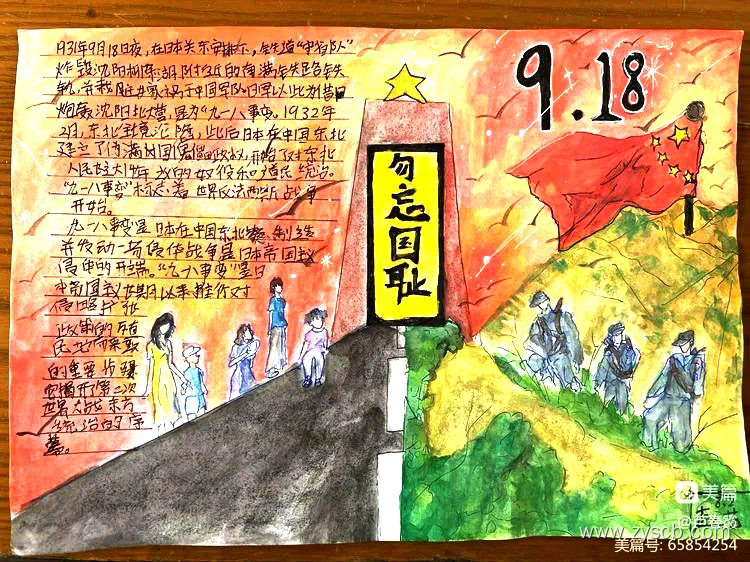 9.18
勿忘国耻
月31年9月18日夜，在日本关东安排下，铁道"守备队"
炸毁沈阳柳条湖附近的南满铁路铁
轨，并栽赃嫁祸于中国军队日军以此为借口
炮轰沈阳北大营，是为"九一八事变。1932年
2月，东北全境沦陷，此后日本在中国东北
建立了伪满洲国傀儡政权，开始了对东北
人民长达14年之久的奴役和殖民统治。
"九一八事变"标志着世界反法西斯战争
开始。
九一八事变是日本在中国东北蓄制造
并发动一场侵华战争是日本帝国主义
侵华的开端。"九一八事变"是日
本帝国主义长期以来推行对
侵略扩张
政策的
的重要步骤
它揭开了第二次
世界大战东方
的序
幕。
美篇
www.zyscb.com
美篇号: 65854254